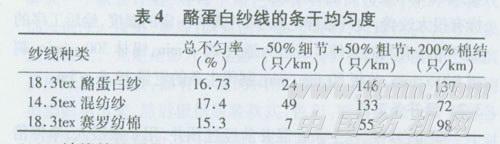 表4 酪蛋白纱线的条干均匀度
纱线种类 总不匀率 -50%细节 +50%粗节 +200%棉结
(%) (只/km) (只/km) (只/km)
18.3tex 酪蛋白纱 16.73 24 146 137
14.5tex 混纺纱 17.4 49 133 72
18.3tex 赛罗纺棉 15.3 7 55 98
中国纺机网